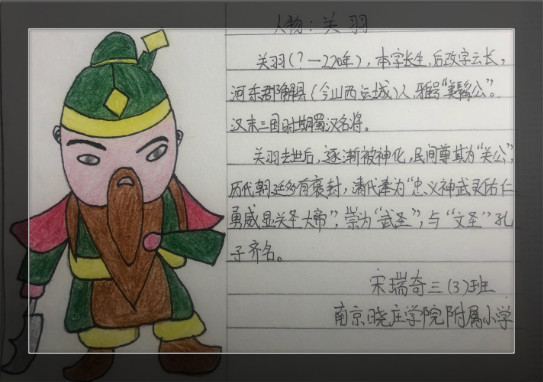 人物：关羽
关羽（？一220年），本字长生，后改字云长，
河东郡解县（今山西运城）人，雅号"美髯公"。
汉末三国时期蜀汉名将。
关羽去世后，逐渐被神化，民间尊其为"关公"，
历代朝廷多有褒封，清代奉为"忠义神武灵佑仁
勇威显关圣大帝"，崇为"武圣"，与"文圣"孔
子齐名。
宋瑞奇三（3）班
南京晓庄学院附属小学